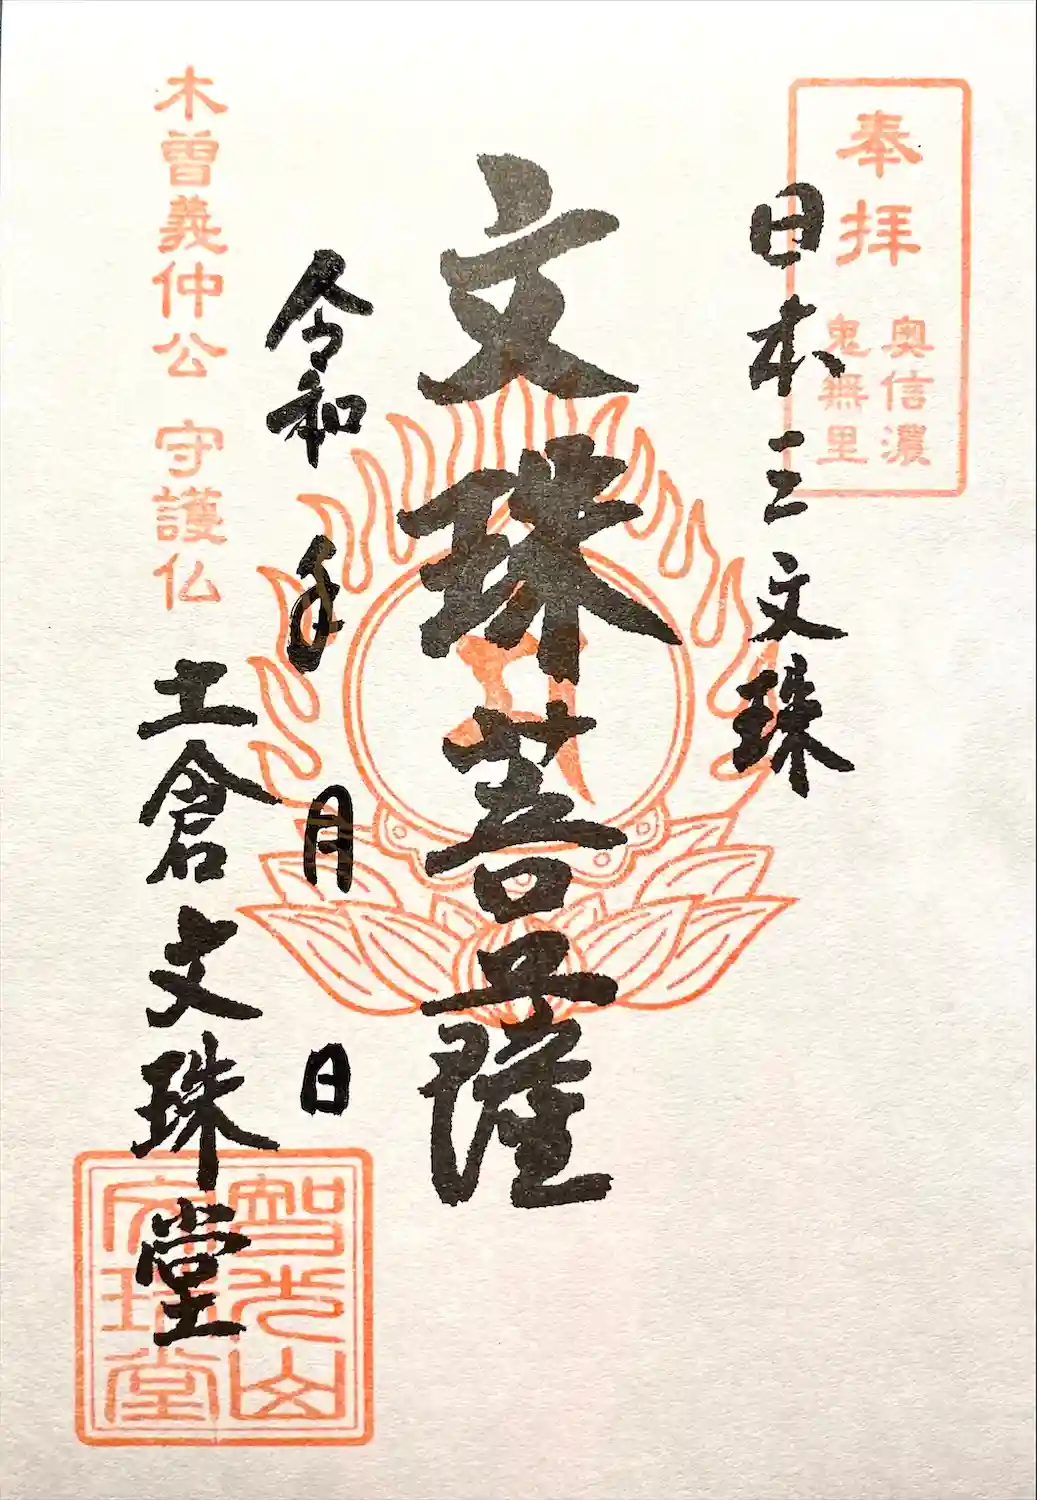 奉拝
奥信濃
鬼無里
日本三文珠
文珠菩薩
令和 年 月 日
木曽義仲公 守護仏
土倉文珠堂
智光山
文珠堂